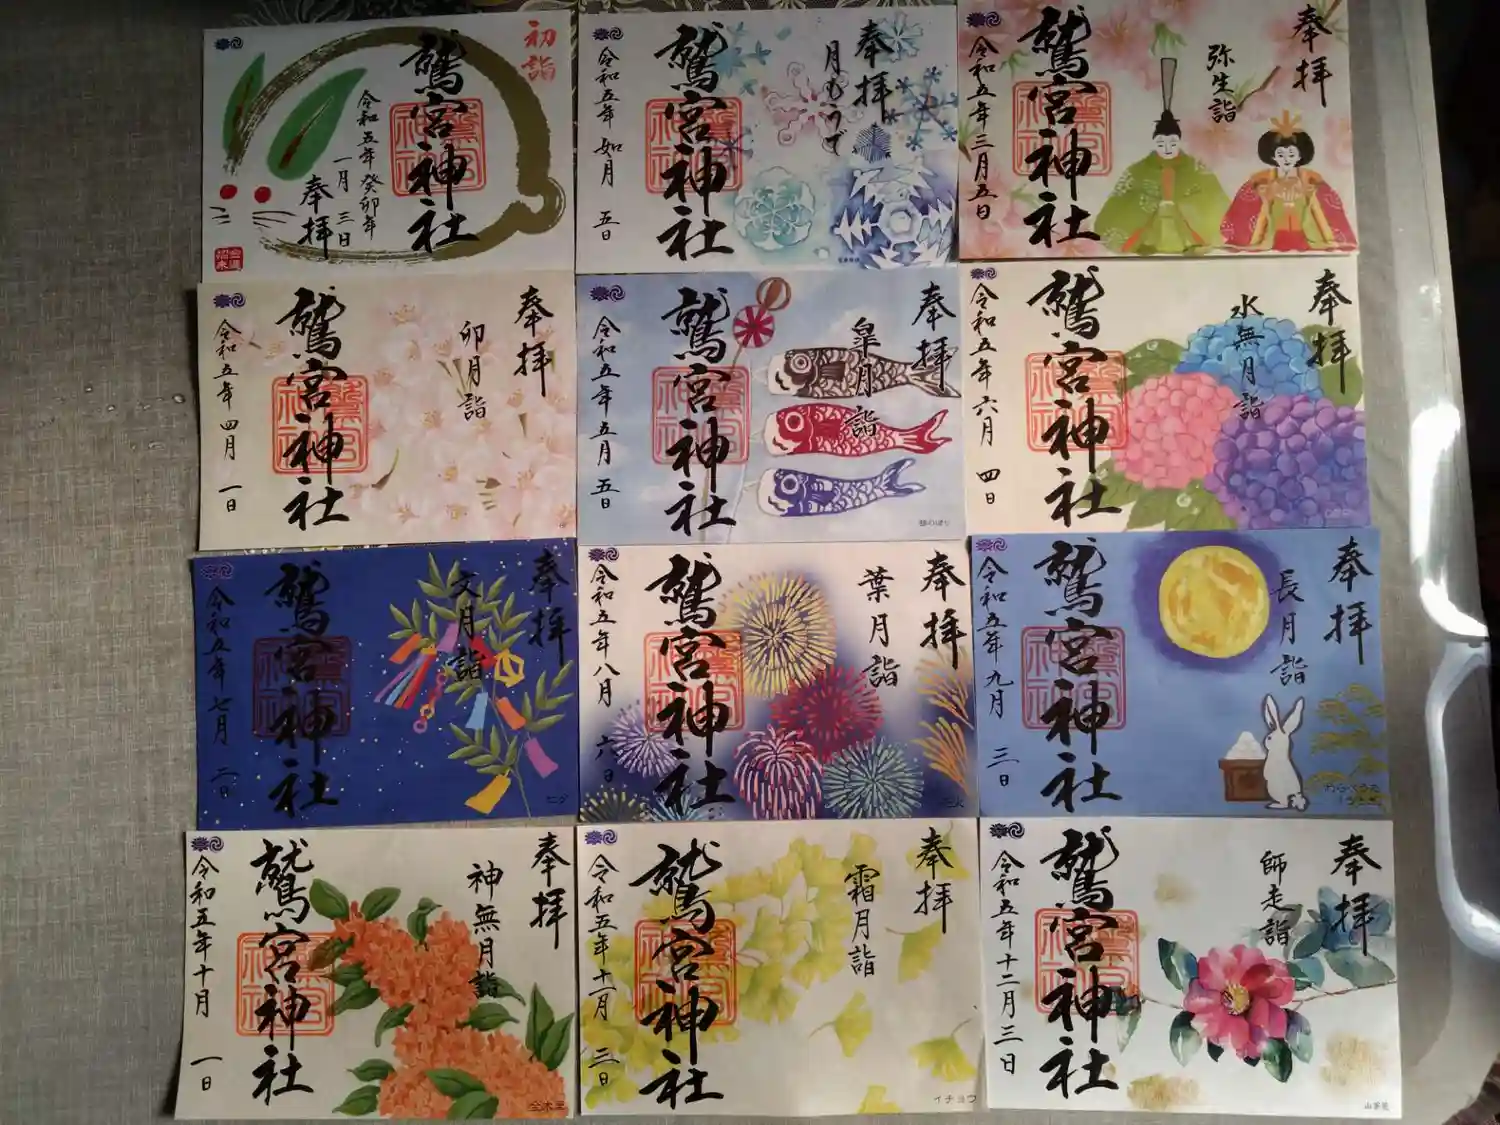 初詣
鷲宮神社
令和五年 癸卯年
一月 三日
奉拝
奉拝
月もうで
鷲宮神社
令和五年 如月 五日
奉拝
弥生詣
鷲宮神社
令和五年三月五日
奉拝
卯月詣
鷲宮神社
令和五年四月 一日
奉拝
皐月詣
鷲宮神社
令和五年五月 五日
奉拝
水無月詣
鷲宮神社
令和五年六月 四日
奉拝
文月詣
鷲宮神社
令和五年七月 二日
奉拝
葉月詣
鷲宮神社
令和五年八月 六日
奉拝
長月詣
鷲宮神社
令和五年九月 三日
奉拝
神無月詣
鷲宮神社
令和五年十月 一日
金木犀
奉拝
霜月詣
鷲宮神社
令和五年十一月 三日
イチョウ
奉拝
師走詣
鷲宮神社
令和五年十二月三日
山茶花